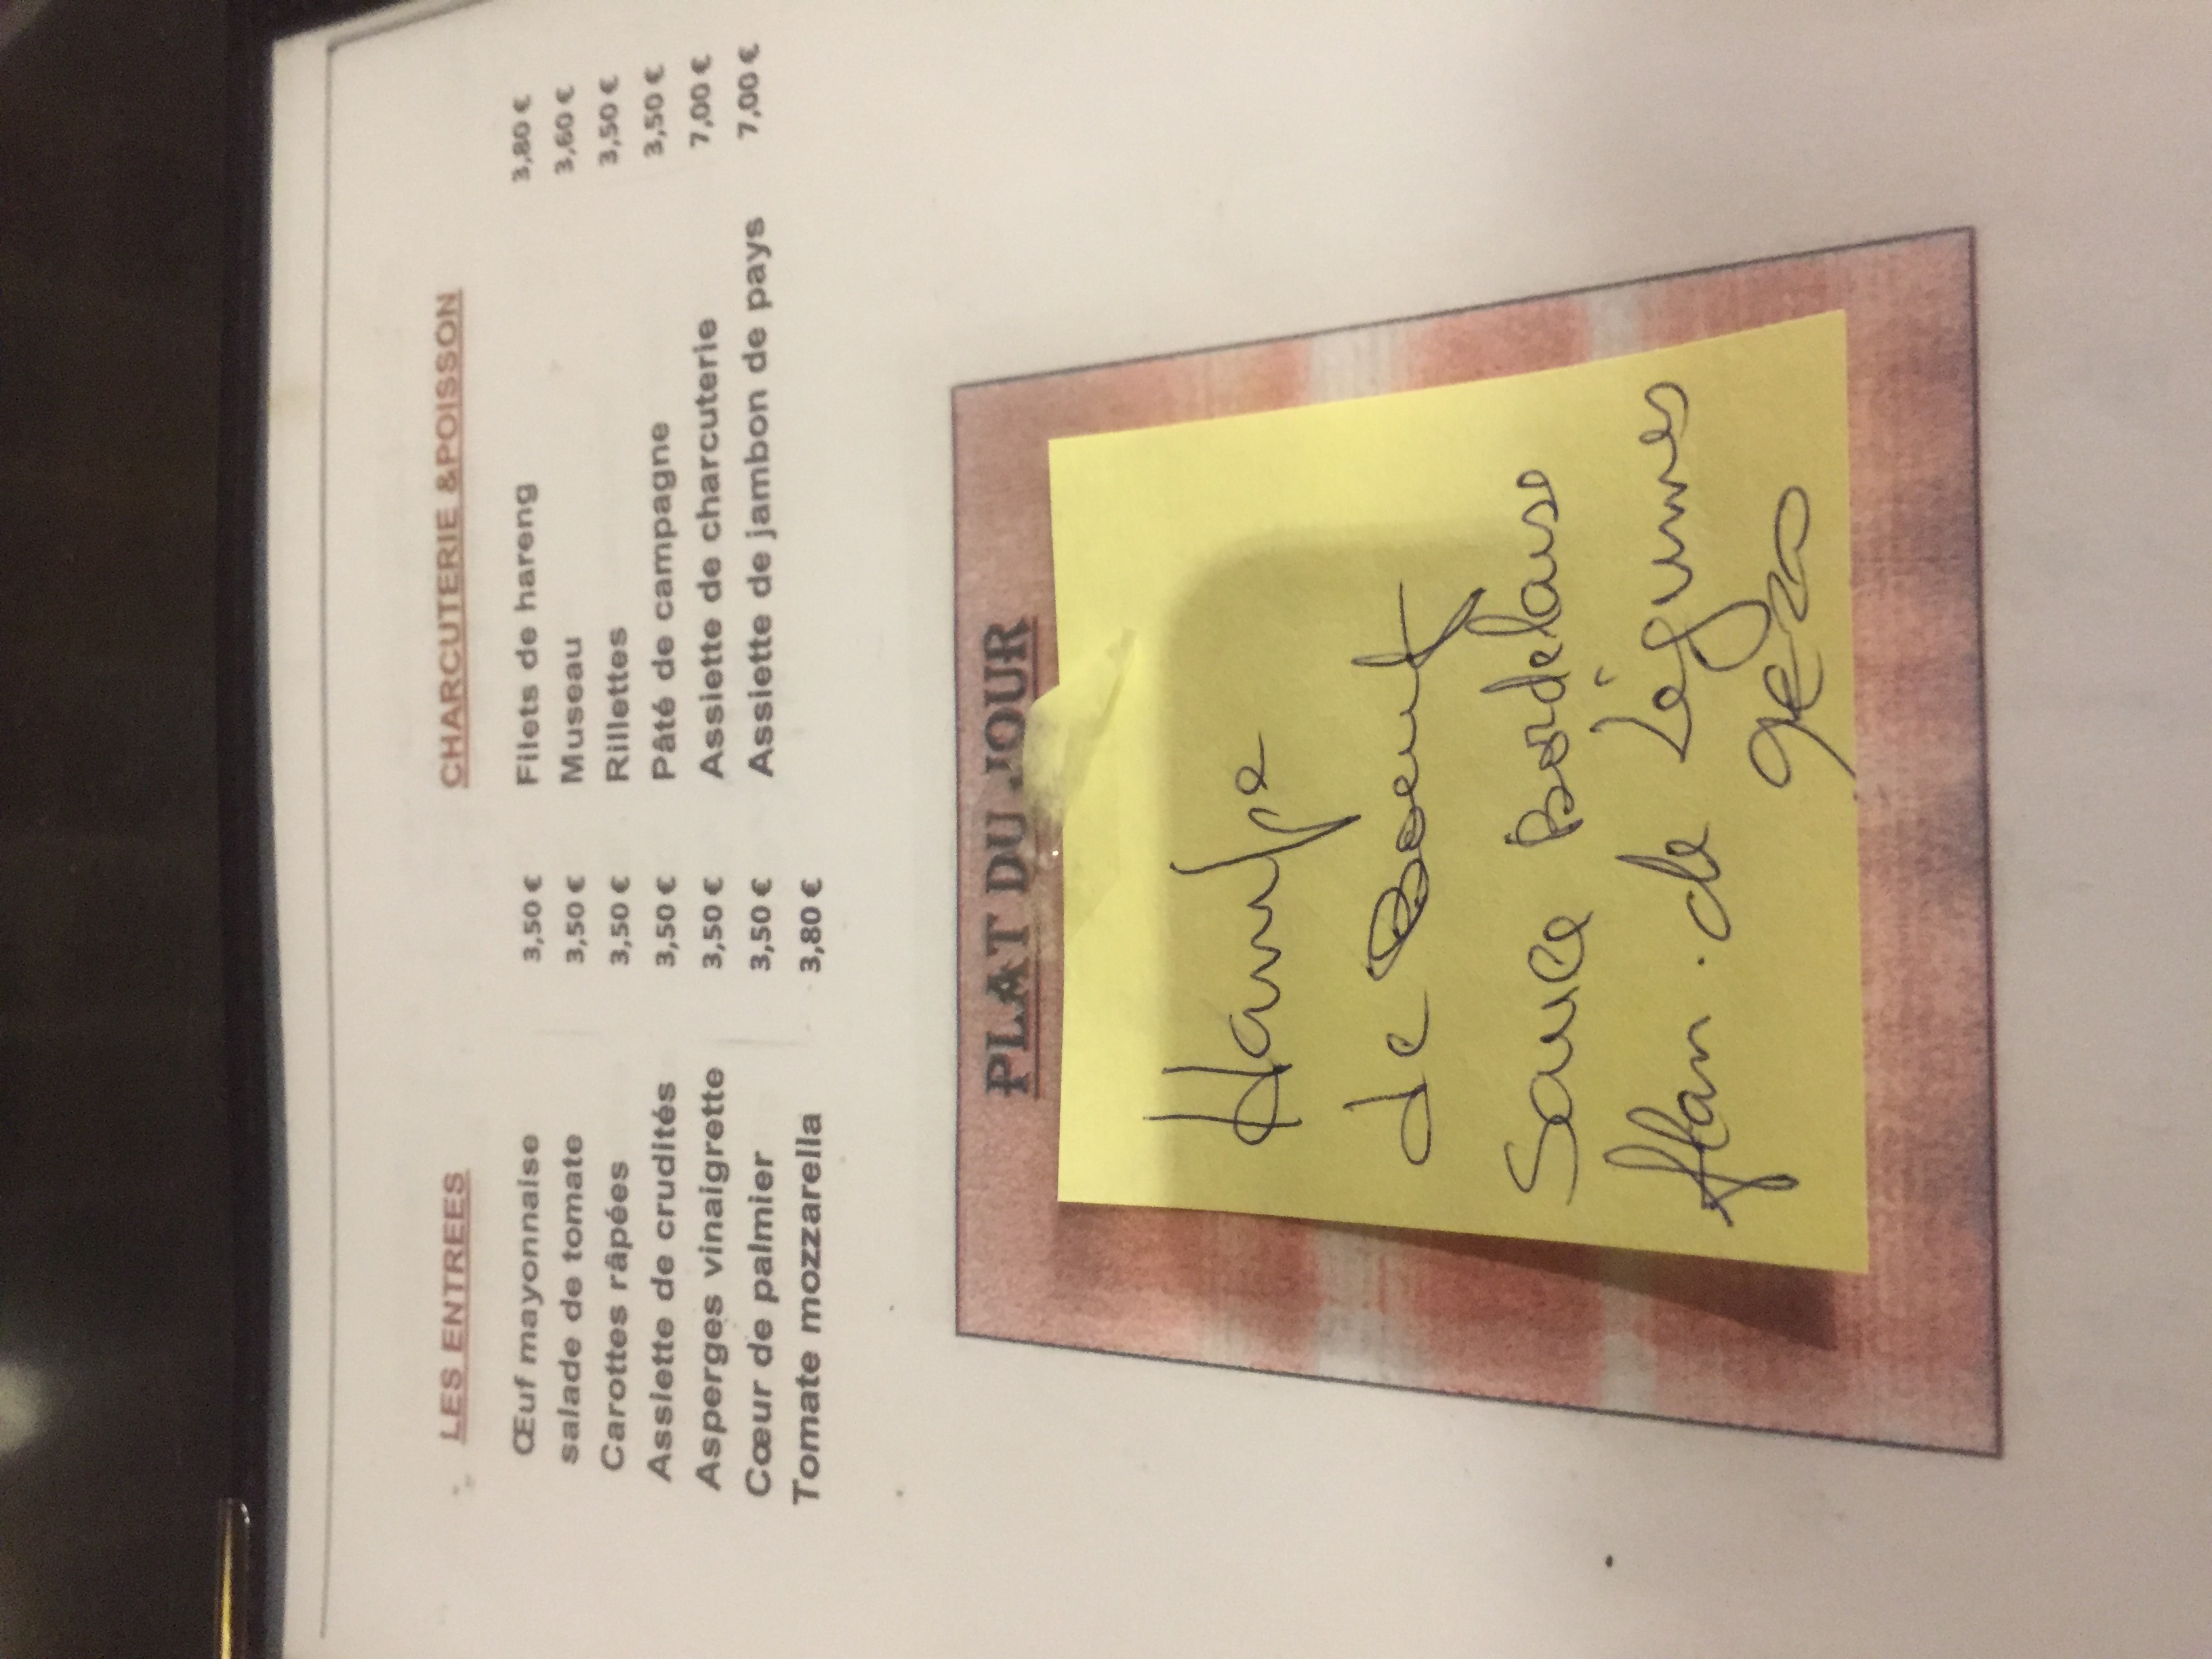 LES ENTREES
Œuf mayonnaise 3,50 €
salade de tomate 3,50 €
Carottes râpées 3,50 €
Assiette de crudités 3,50 €
Asperges vinaigrette 3,50 €
Cœur de palmier 3,50 €
Tomate mozzarella 3,80 €
CHARCUTERIE &POISSON
Filets de hareng 3,80 €
Museau 3,60 €
Rillettes 3,50 €
Pâté de campagne 3,50 €
Assiette de charcuterie 7,00 €
Assiette de jambon de pays 7,00 €
PLAT DU JOUR
Hampe
de Boeuf
Sauce Bordelaise
de Légumes